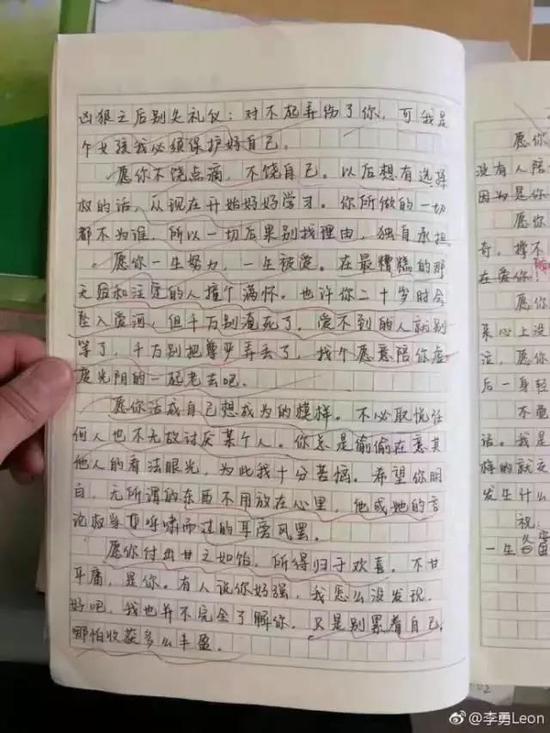 凶狠之后别失礼仪：对不起弄伤了你，可我是
个女孩我必须保护好自己。
愿你不饶点滴，不饶自己。以后想有选择
权的话，从现在开始好好学习。你所做的一切
都不为谁，所以一切后果别找理由，独自承担
愿你一生努力，一生被爱。在最糟糕的那
无段和注定的人撞个满怀。也许你二十岁时会
坠入爱河，但千万别淹死了，爱不到的人就别
等了，千万别把尊严弄丢了，找个愿意陪你虚
度光阴的一起老去吧。
愿你活成自己想成为的模样。不必取悦任
何人也不无故讨厌某个人。你总是偷偷在意其
他人的看法眼光，为此我十分苦恼。希望你明
白，无所谓的东西不用放在心里，他或她的言
论权当呼啸而过的耳旁风罢。
愿你付出甘之如饴，所得归于欢喜。不甘
平庸，是你。有人说你好强，我怎么没发现，
好吧，我也并不完全了解你。只是别累着自己
哪怕收获多么丰盈。
愿你
没有人陪
因为是你
愿你
奇，撑不
在爱你
愿你
某心上没
注，愿你
后一身轻
不要
话。我是
样的就交
发生什么
祝：
一生
@李勇Leon